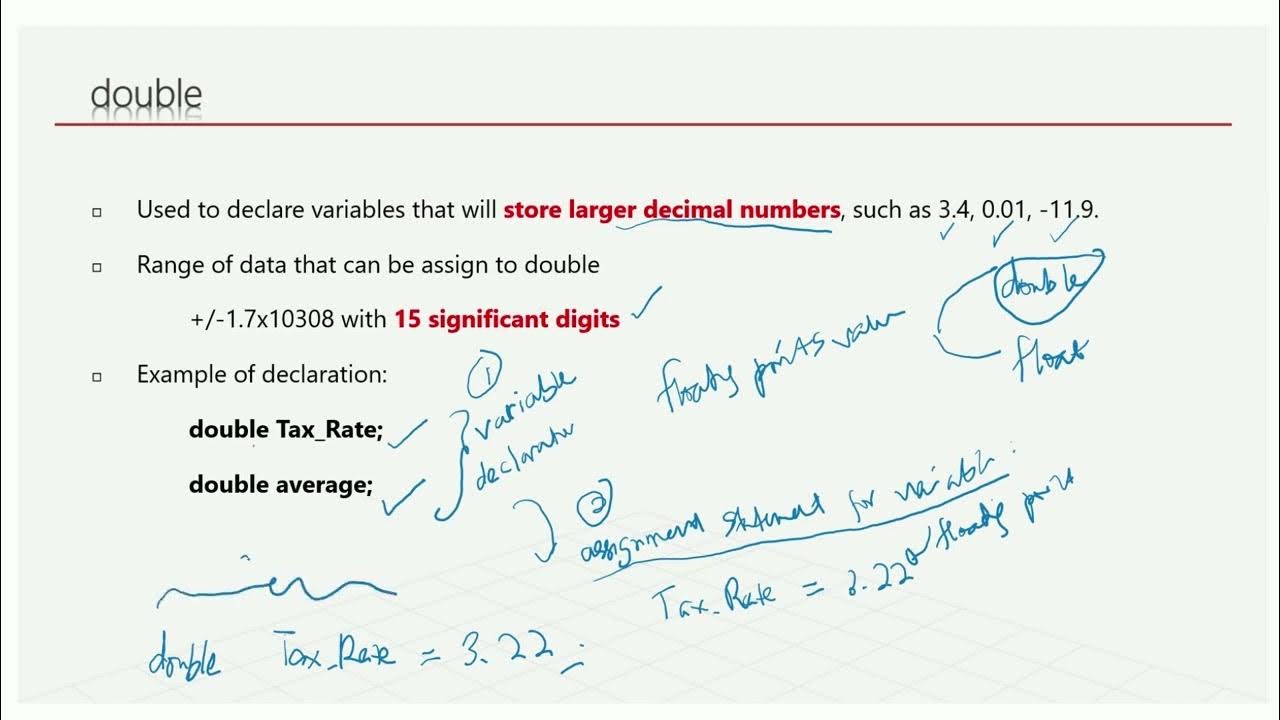 double
Used to declare variables that will store larger decimal numbers, such as 3.4, 0.01, -11.9.
Range of data that can be assign to double
+/-1.7x10308 with 15 significant digits
Example of declaration:
double Tax_Rate;
double average;
double
float
floating points value
1
variable
declaration
2
assignment statement for variable:
Tax_Rate = 3.22
floating point
double Tax_Rate = 3.22;